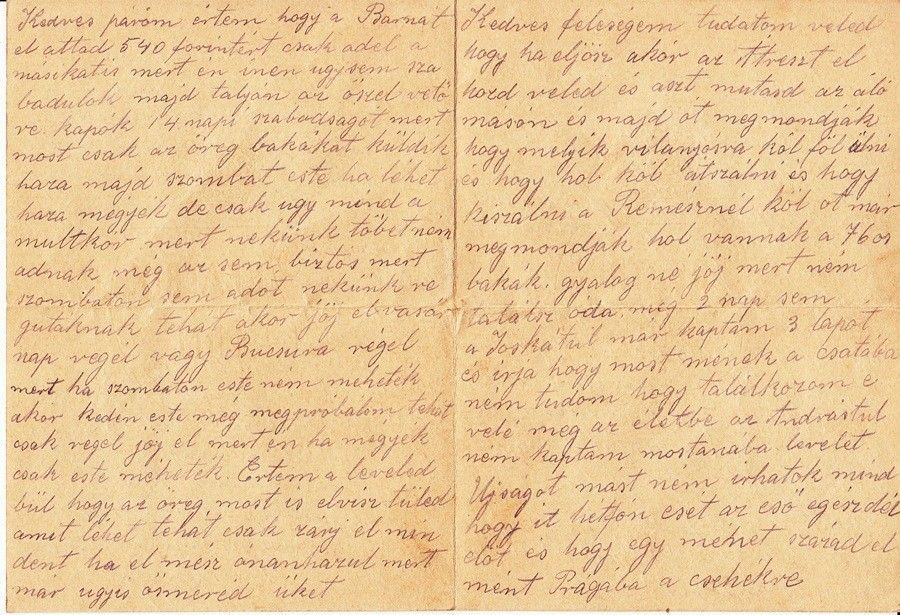 Kedves párom értem hogy a Barnát
el attad 540 forintért csak adel a
másikatis mert én inen ugysem sza
badulok majd talján az öszel vető
re kapók 14 napi szabadságot mert
most csak az öreg bakákat küldik
haza majd szombat este ha léhet
haza mégyék de csak ugy mind a
multkor mert nekünk töbet ném
adnak még az sem biztos mert
szombaton sem adot nekünk re
gutaknak tehát akor jöj el vasár
nap végél vagy Bucsura végél
mert ha szombaton este ném mehéték
akor kedén este még megpróbálom tehát
csak végél jöj el mert én ha mégyék
csak este méheték. Értem a leveled
bül hogy az öreg most is elvisz tüled
amit léhet tehát csak zarj el min
dent ha el mész ónanhazul mert
már ugyis ösméréd üket
Kedves feleségem tudatom veled
hogy ha eljösz akor az Attreszt el
hozd veled és aszt mutasd az áló
máson és majd ot mégmondják
hogy melyik vilanyósra köl föl ülni
és hogy hol köl átszálni és hogy
kiszálni a Remésznél köl ot már
mégmondják hol vannak a 76 os
bakák. gyalog ne jöj mert ném
találsz oda még 2 nap sem
a Joskátul már kaptam 3 lapot
és irja hogy most mének a csatába
ném tudom hogy találkozom e
velé még az életbe az Andrástul
ném kaptam mostanába levelet
Ujságot mást ném irhatok mind
hogy it hétfőn esét az eső egész dél
előt és hogy égy menet század el
mént Prágába a csehékre